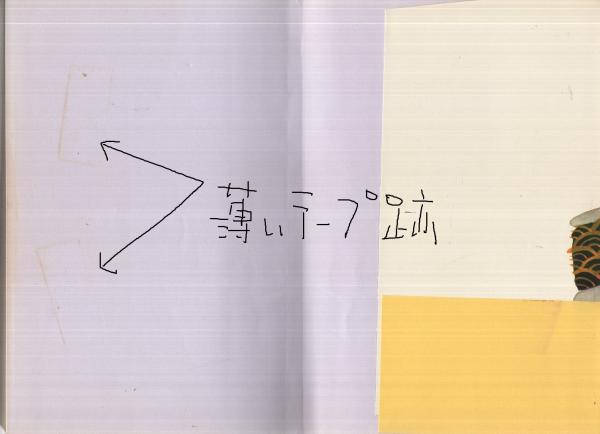 薄いテープ跡